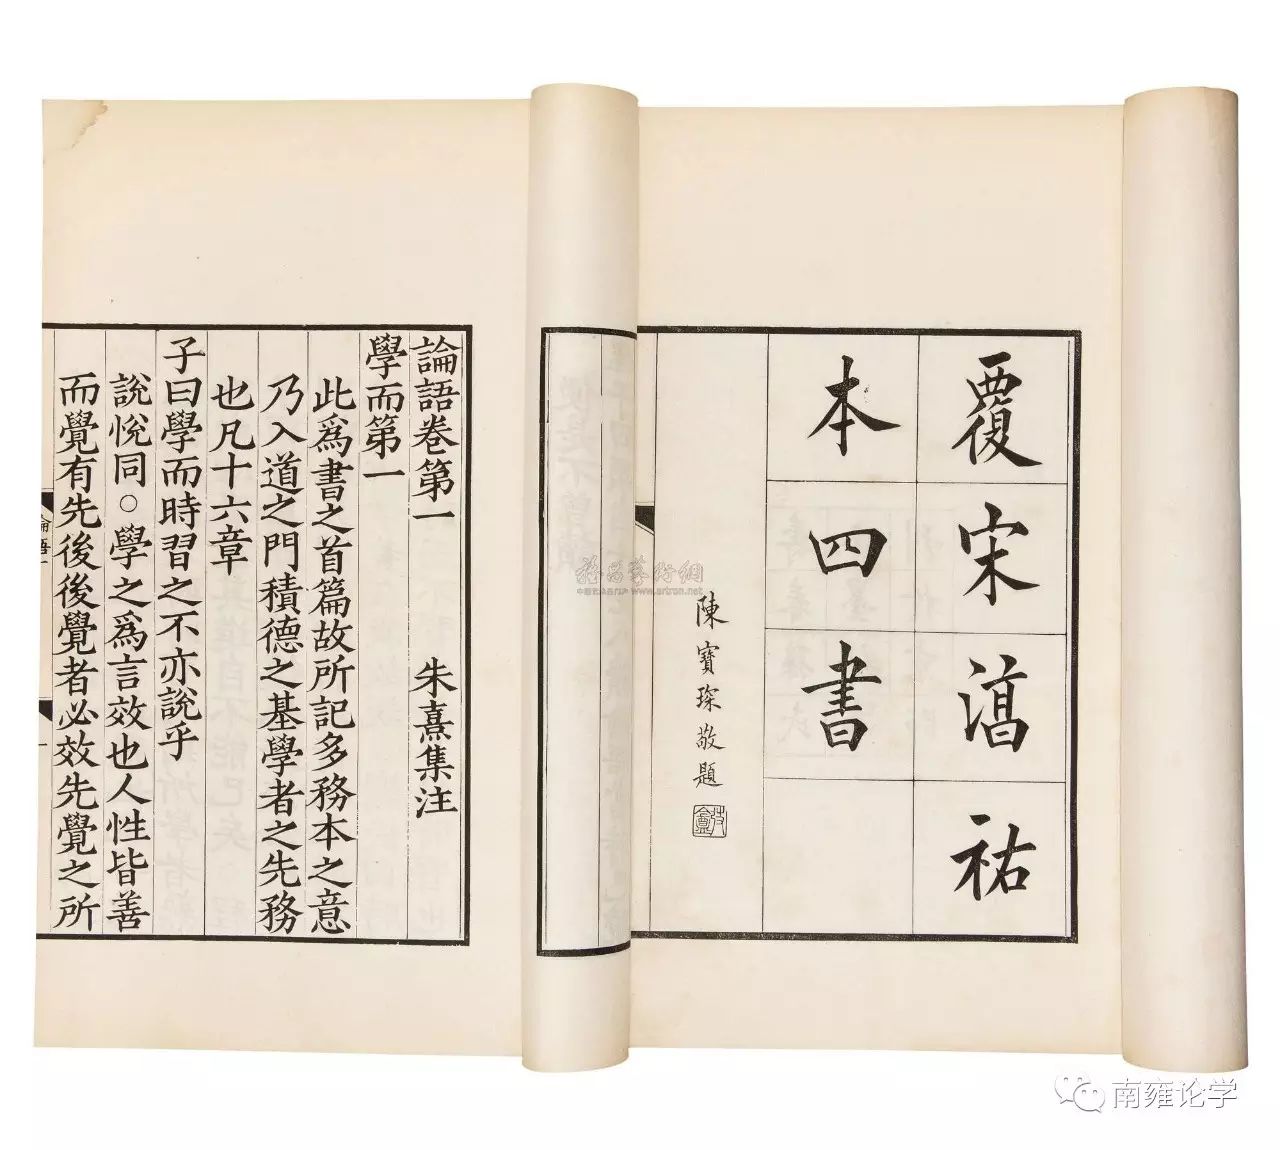 覆宋淳祐
本四書
陳寶琛敬題
論語卷第一 朱熹集注
學而第一
此爲書之首篇故所記多務本之意
乃入道之門積德之基學者之先務
也凡十六章
子曰學而時習之不亦說乎
說悅同○學之爲言效也人性皆善
而覺有先後後覺者必效先覺之所
www.artron.net
南雍论学